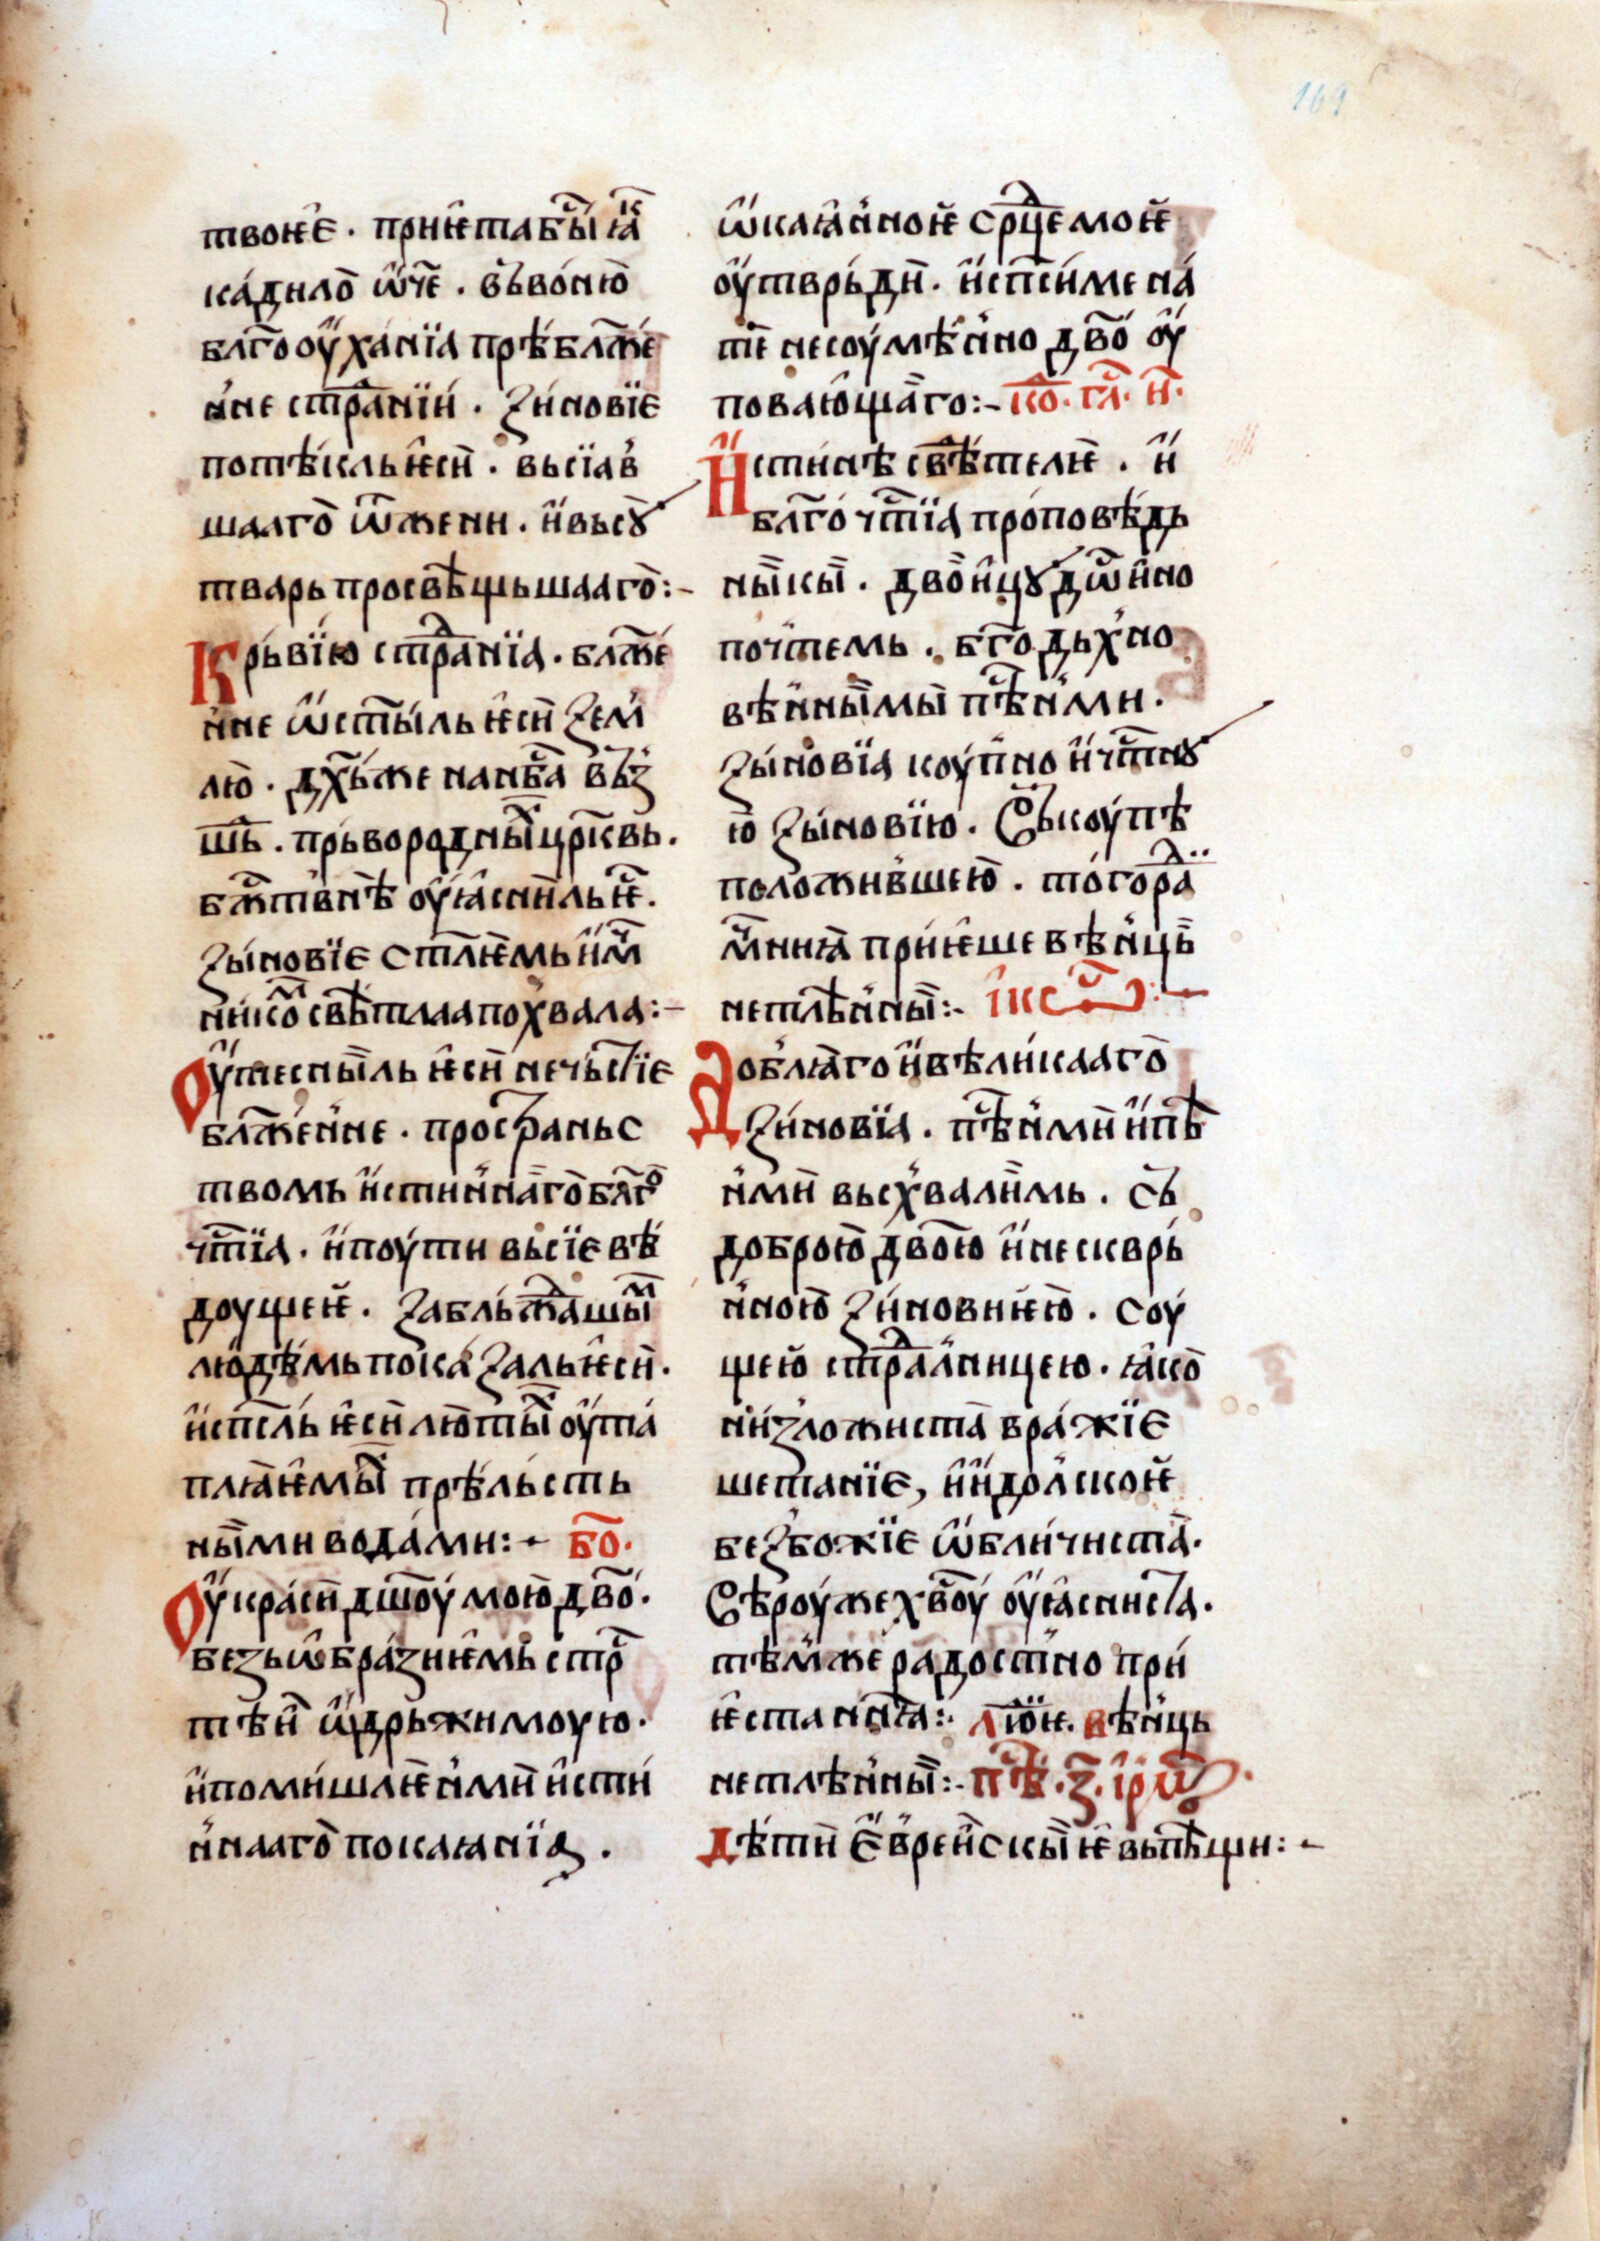 169
твоѥ҆Є · прїѥ҆та бы́ ꙗ҆ⷦ҇
ка́дило҄ ѡ҆ч҃е · въ во́ню҄
блг҃ооу҆ха́нїа прѣбл҃же́
нне стрⷣанїи · Зи́новїе
потѣ́кль ѥ҆сѝ · вьсїав
шааго ѿ жени · и҆ вьсꙋ
тварь просвѣщьшааго:-
Крь́вїю стрⷣанїа · бл҃же́
нне ѡ҆ст҃ы́ль ѥ҆сѝ зем
лю҄ · дх҃ь́же на нб҃са вьз
шь · прьвородныⷯ цр҃квь ·
бжⷭ҇твнѣ оу҆ꙗ҆сни́ль ѥ҆ ·
Зы́новїе ст҃лѥмь и҆ мⷱ҇
никоⷨ свѣтлаа похвала:-
Оу҆тесны́ль ѥ҆сѝ нечьстїе
бл҃же́нне · прострⷣаньс
твомь и҆стинна́го бл҃го
чⷭ҇тїа · и҆ поути вьсїе вѣ́
доущеѥ · Забль́жⷣашыⷨ
лю́дѣмь пока́заль ѥ҆сѝ ·
и҆сп҃сль ѥ҆сѝ лю҄тыⷯ оу҆та́
плꙗѥмыⷯ прѣ́льсть
ны́ми вода́ми:- бо҃ ·
Оу҆кра́сѝ дш҃оу мою҄ дв҃о ·
безьѡ҆бра́зиѥмь стрⷭ҇
тѣи ѡ҆дрь́жимоую ·
и҆ поми́шлѥнми и҆сти́
ннааго покаꙗнїа ·
ѡ҆каꙗ́нноѥ срⷣце моѥ
оу҆тврь́ди · и҆ сп҃си́ ме на́
те несоумѣ́нно дв҃о оу҆
поваю҆ща́го:- ко҃ · гла · и҃ ·
И҆стинѣ свѣ́телѥ · и҆
блг҃о́чⷭ҇тїа про́повѣ́дь
ны́кы · дво҄ицꙋ дѡ҆ино
почⷭ҇темь · бг҃одьхно
вѣ́нны́мы пѣⷭ҇нми ·
Зы́новїа коупно и҆ чⷭ҇тнꙋ
ю Зы́новїю · Ськоупѣ
положившею҄ · то́го раⷣ
мⷱ҇ниꙗ прїѥ҆ше вѣ́нць
нетлѣ́нны:- і҆коⷭ҇:-
Добля́го и҆ вели́кааго
Зи́новїа · пѣⷭ҇нми и҆ пѣ
нми вьсхвали́мь · сь
доброю҄ дв҃ою и҆ несквры́
нною҄ Зи́новиѥю҄ · соу́
щею стрⷣалницею · ꙗ҆ко҄
ни́зложиста вра́жїе
шетанїе, и҆ и҆дольскоѥ
безбо́жїе ѡ҆бли́чиста ·
Сѣроу́же хв҃оу оу҆ꙗ҆сниста ·
тѣмже радостно при́
ѥ҆ста нн҃ꙗ:· люїе · вѣ́нць
нетлѣ́нны:- пѣⷭ҇ · з҃ · і҆рмⷭ҇ ·
Дѣ́ти Є҆вреи҆скы́ѥ вь пе́щи:-